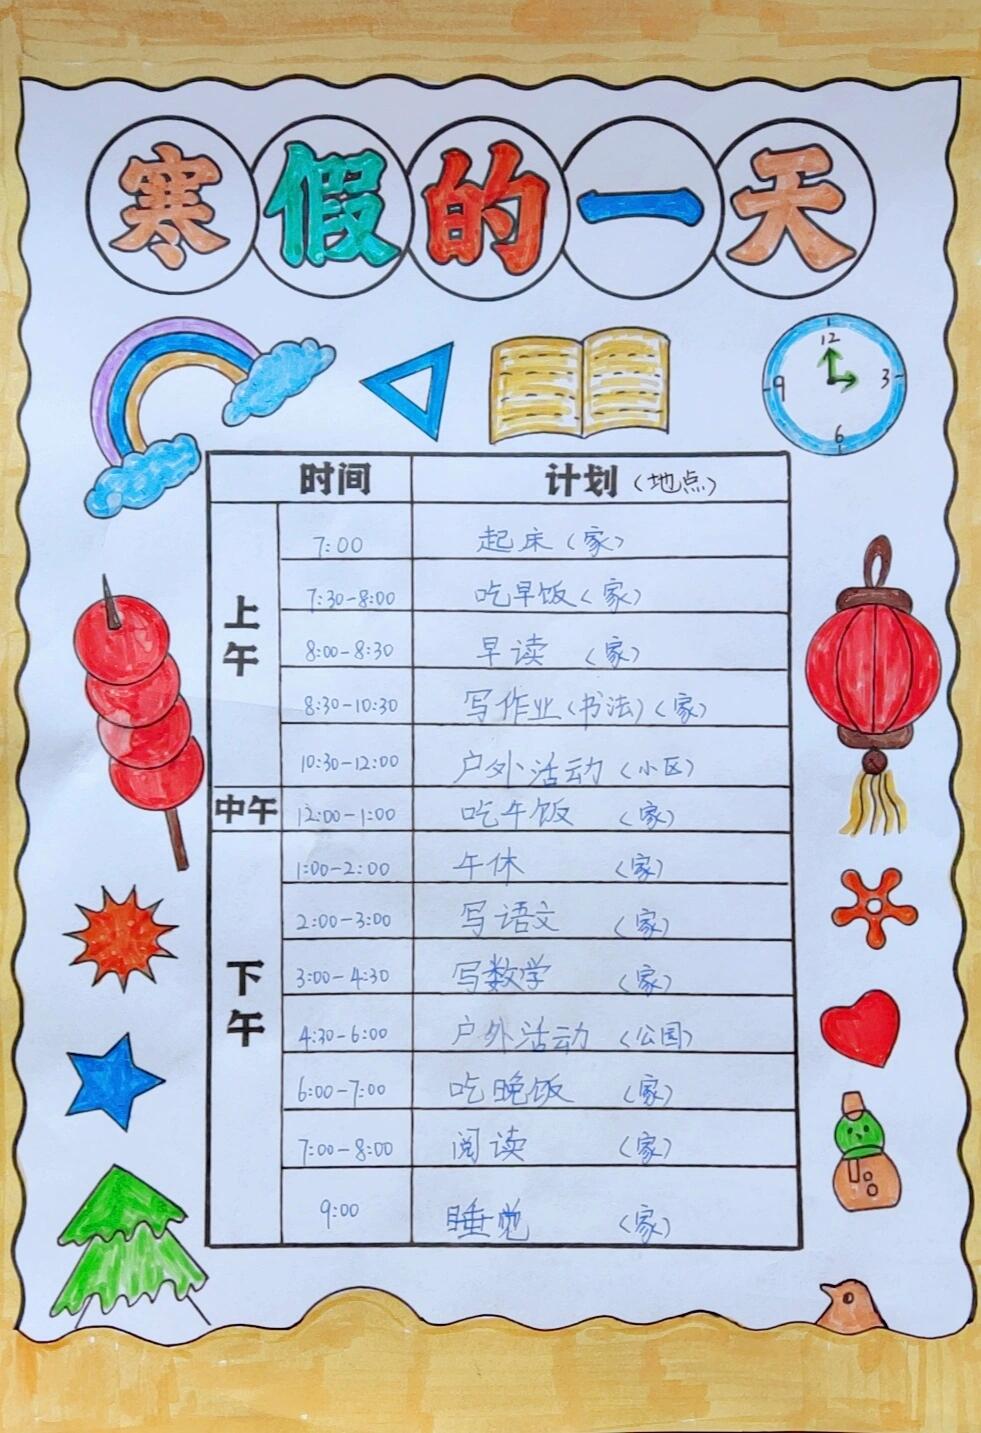 寒假的一天
12
9 3
6
时间 计划（地点）
上午
7:00 起床（家）
7:30-8:00 吃早饭（家）
8:00-8:30 早读（家）
8:30-10:30 写作业（书法）（家）
10:30-12:00 户外活动（小区）
中午 12:00-1:00 吃午饭（家）
下午
1:00-2:00 午休（家）
2:00-3:00 写语文（家）
3:00-4:30 写数学（家）
4:30-6:00 户外活动（公园）
6:00-7:00 吃晚饭（家）
7:00-8:00 阅读（家）
9:00 睡觉（家）